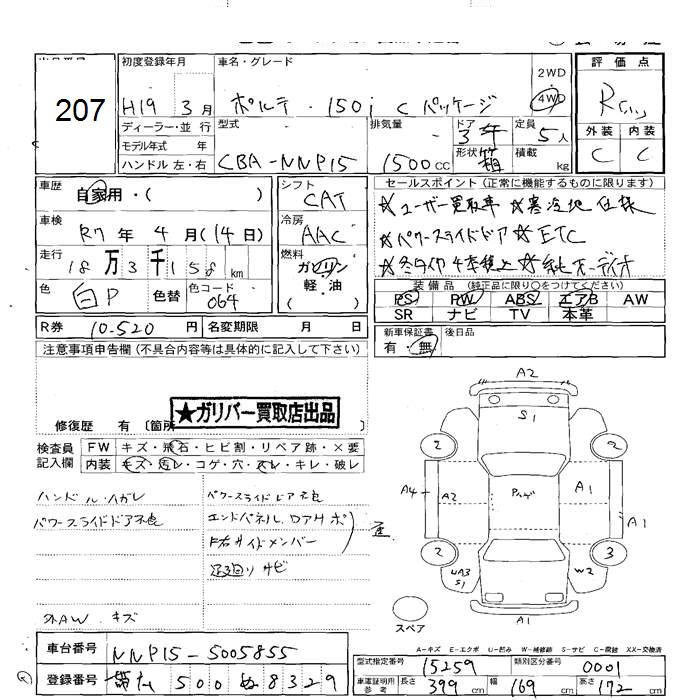 207
初度登録年月
車名・グレード
H19 3月
ポルテ・150i Cパッケージ
2WD
4WD
評価点
R
外装 内装
C C
ディーラー・並行
モデル年式 年
ハンドル 左・右
型式
CBA-NNP15
排気量
1500CC
ドア
形状 箱
定員
5人
積載
kg
車歴
自家用・( )
車検
R7年 4月(14日)
走行
18万3千158km
色
白P
色替
色コード
064
シフト
CAT
冷房
AAC
燃料
ガソリン
軽・油
セールスポイント(正常に機能するものに限ります)
☆ユーザー買取車 ☆寒冷地仕様
☆パワースライドドア ☆ETC
装備品(純正品に限り○をつけてください)
PS PW ABS エアB AW
SR ナビ TV 本革
R券 10,520円
名変期限 月 日
新車保証書
有・無
後日品
注意事項申告欄(不具合内容等は具体的に記入して下さい)
★ガリバー買取店出品
修復歴 有 [箇所 ]
検査員
記入欄
FW キズ・飛石・ヒビ割・リペア跡・×要
内装 キズ・汚レ・コゲ・穴・スレ・キレ・破レ
ハンドル ハガレ
パワースライドドア不良
外AW キズ
パワースライドドア不良
エンドパネル、
F右サイドメンバー
下廻り サビ
A2
S1
2
2
A4
A2
A1
A1
2
3
S1
W2
A1
スペア
A-キズ E-エクボ U-凹み W-補修跡 S-サビ C-腐蝕 XX-交換済
車台番号
NNP15-5005855
登録番号
500 ぬ 8329
型式指定番号
15259
類別区分番号
0001
車庫証明用
参考
長さ
399cm
幅
169cm
高さ
172cm